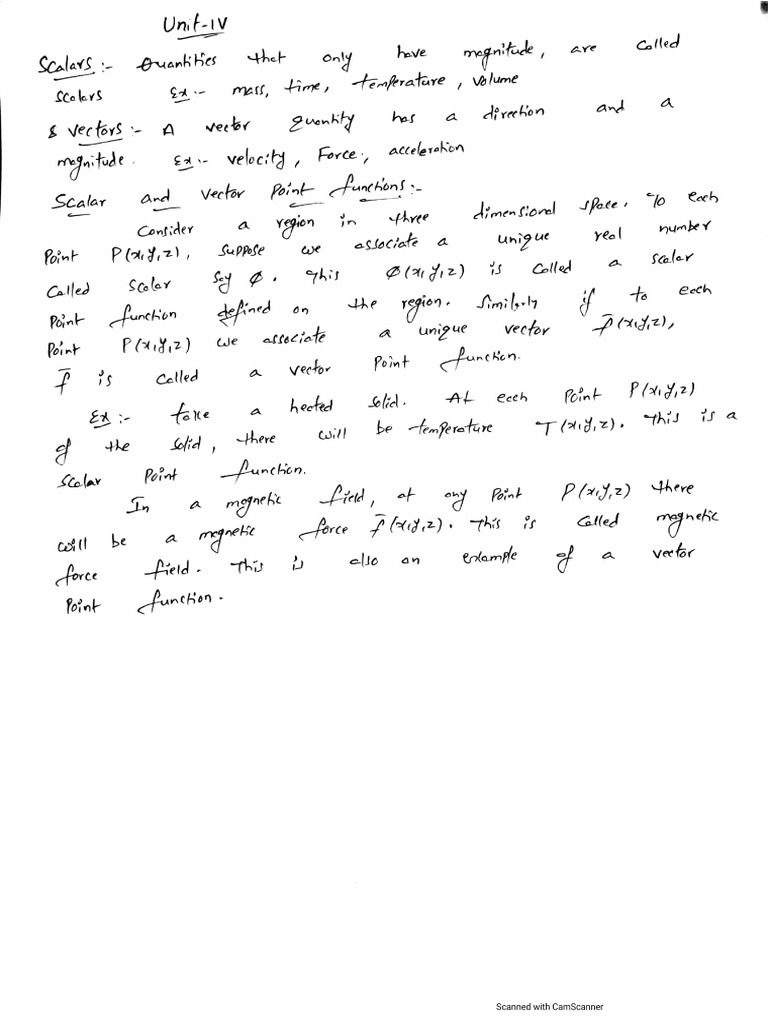 Unit-IV
Scalars :- Quantities that only have magnitude, are called
scalars Ex :- mass, time, temperature, volume
& vectors :- A vector quantity has a direction and a
magnitude. Ex :- velocity, Force, acceleration
Scalar and vector point functions :-
Consider a region in three dimensional space. To each
point P(x,y,z), suppose we associate a unique real number
called scalar say φ. This φ(x,y,z) is called a scalar
point function defined on the region. Similarly if to each
point P(x,y,z) we associate a unique vector f̄(x,y,z),
f̄ is called a vector point function.
Ex :- take a heated solid. At each point P(x,y,z)
of the solid, there will be temperature T(x,y,z). This is a
scalar point function.
In a magnetic field, at any point P(x,y,z) there
will be a magnetic force f̄(x,y,z). This is called magnetic
force field. This is also an example of a vector
point function.
Scanned with CamScanner